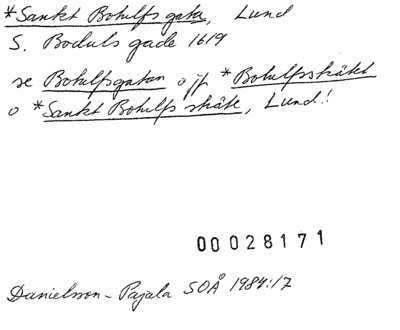 *Sankt Botulfs gata, Lund
S. Boduls gade 1619
se Botulfsgatan o jfr *Botulfssträtet
o *Sankt Botulfs sträte, Lund!
00028171
Danielsson-Pajala SOÅ 1984:17